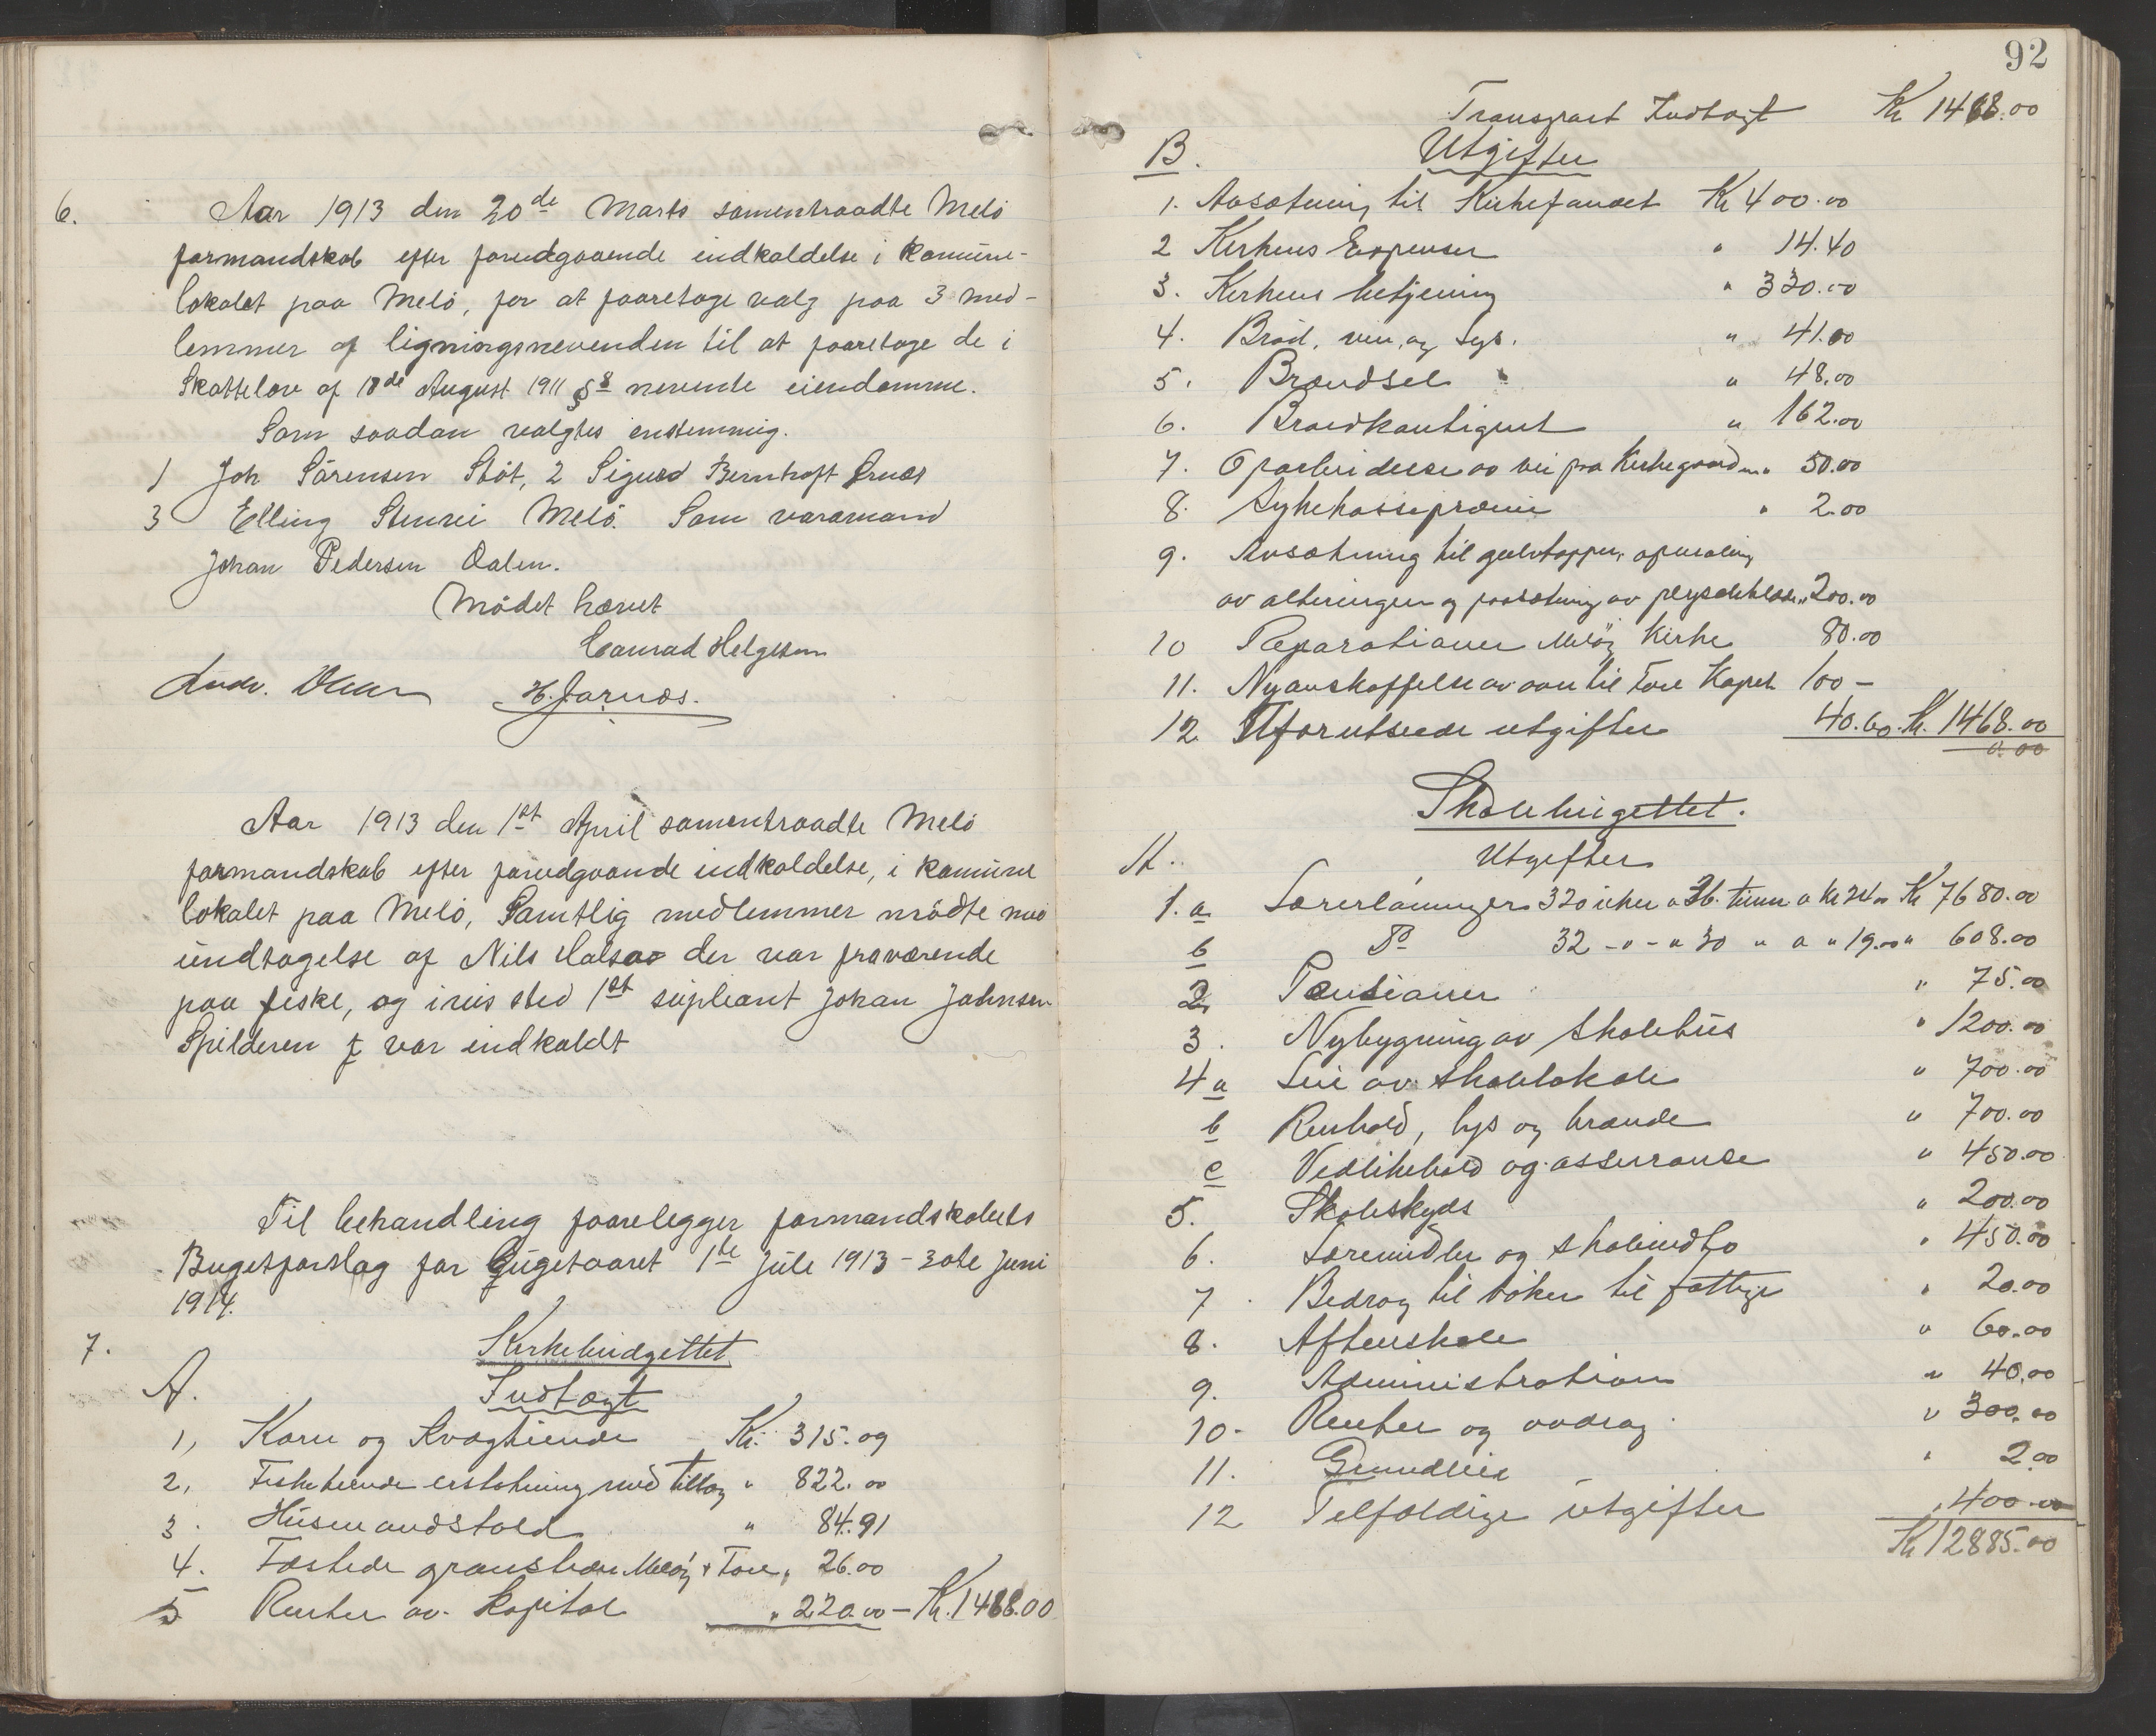 6. Aar 1913 den 20de Marts samentraadte Melø
formandskab efter forudgaaende indkaldelse i komune-
lokalet paa Melø, for at foaretage valg paa 3 med-
lemmer af ligningsnevenden til at foaretage de i
Skattelov af 18de August 1911 § 8 nevnte eiendomme.
Som saadan valgtes enstemmig.
1 Joh Sørensen Støt, 2 Sigurd Bernhoft Ørnes
3 Elling Stenvei Melø. Som varamand
Johan Pedersen Dalen.
Mødet hævet
Conrad Helgesen
Ludv. Olsen H. Jarnæs.
Aar 1913 den 1st April samentraadte Melø
formandskab efter forudgaande indkaldelse, i komune
lokalet paa Melø, Samtlig medlemmer mødte med
undtagelse af Nils Halsaa der var fraværende
paa fiske, og i vis sted 1st supleant Johan Johnsen
Spilderen var indkaldt
Til behandling foarelegger formandskabets
Bugetforslag for Bugetaaret 1te Juli 1913 - 30te Juni
1914.
7. Kirkebudgettet
A. Indtægt
1, Korn og Kvægtiende Kr. 315.09
2, Fisketiende erstatning med tillæg " 822.00
3. Husmandstold " 84.91
4. Fæstede gravsteder Meløy & Tore " 26.00
5 Renter av Kapital " 220.00 - Kr. 1468.00
92
Transport Indtægt Kr 1468.00
B. Utgifter
1. Avsætning til Kirkefondet Kr 400.00
2 Kirkens Expenser " 14.40
3. Kirkens betjening " 330.00
4. Brød, vin, og Lys. " 41.00
5. Brændsel " 48.00
6. Brændkontigent " 162.00
7. Oparbeidelse av vei paa Kirkegaarden " 50.00
8. Sykekassepræmie " 2.00
9. Avsætning til gulvtæpper, opmaling
av alterringen og paasætning av plyschklæde " 200.00
10 Reparationer Meløy Kirke 80.00
11. Nyanskaffelse av ovn til Tore Kapel 100 -
12 Uforutseede utgifter 40.60. Kr. 1468.00
0.00
Skolebugettet.
A. Utgifter
1. a Lærerlønninger 320 uker a 36 timer a kr 24.00 Kr 7680.00
b Do 32 - " - " 30 " a " 19.00 " 608.00
2. Pensioner " 75.00
3. Nybygning av Skolehus " 1200.00
4 a Leie av skolelokale " 700.00
b Renhold, lys og brænde " 700.00
c Vedlikehold og assurance " 450.00
5. Skoleskyds " 200.00
6. Læremidler og skoleindbo " 450.00
7. Bedrag til bøker til fattige " 20.00
8. Aftenskole " 60.00
9. Administration " 40.00
10. Renter og avdrag " 300.00
11. Grundleie " 2.00
12 Tilfældige utgifter " 400.00
Kr 12885.00